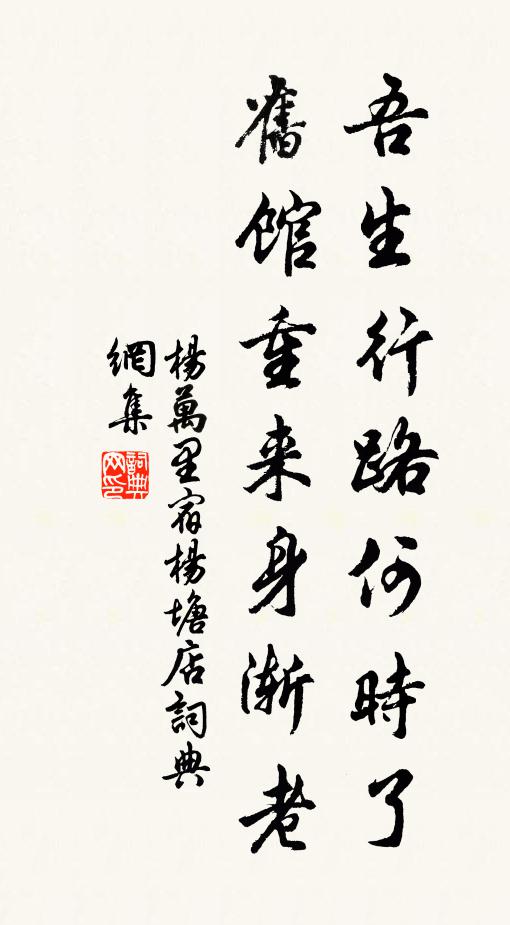 吾生行路何時了
舊館重来身漸老
楊萬里宿楊塘店詞典
網集
詞典
网印